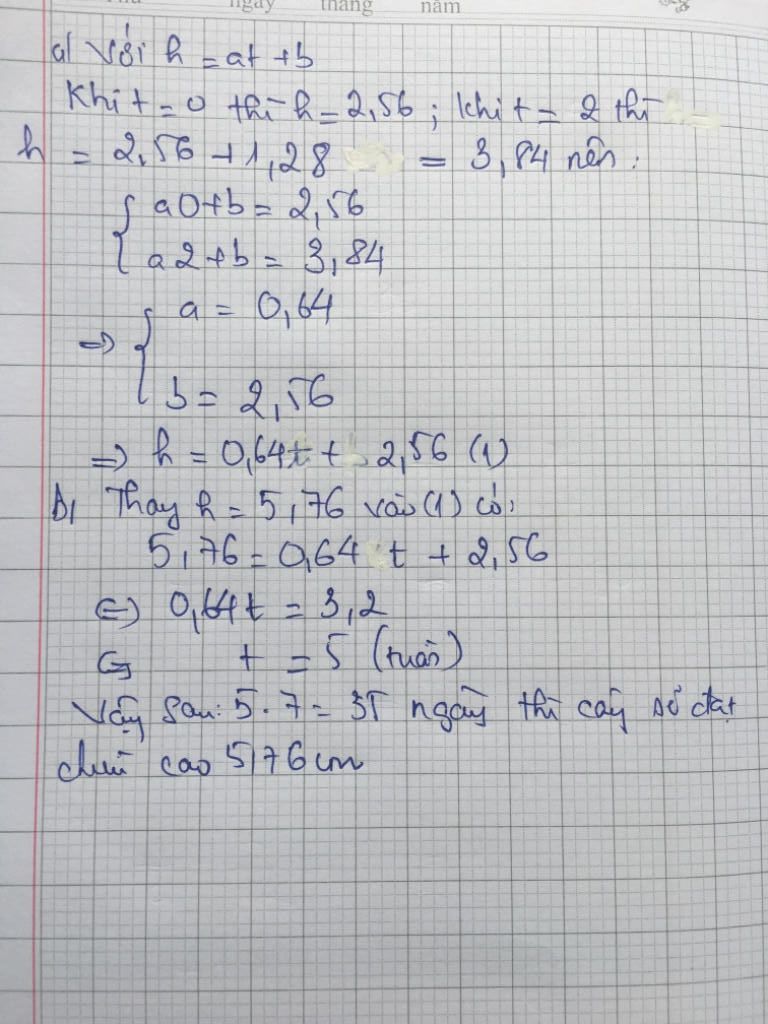 ngày tháng năm
a/ Với h = at + b
Khi t = 0 thì h = 2,56 ; khi t = 2 thì
h = 2,56 + 1,28 = 3,84 nên :
{ a0 + b = 2,56
a2 + b = 3,84
=> { a = 0,64
b = 2,56
=> h = 0,64t + 2,56 (1)
b/ Thay h = 5,76 vào (1) có:
5,76 = 0,64 t + 2,56
<=> 0,64t = 3,2
t = 5 (tuần)
Vậy sau: 5.7 = 35 ngày thì cây sẽ đạt
chiều cao 5,76 cm